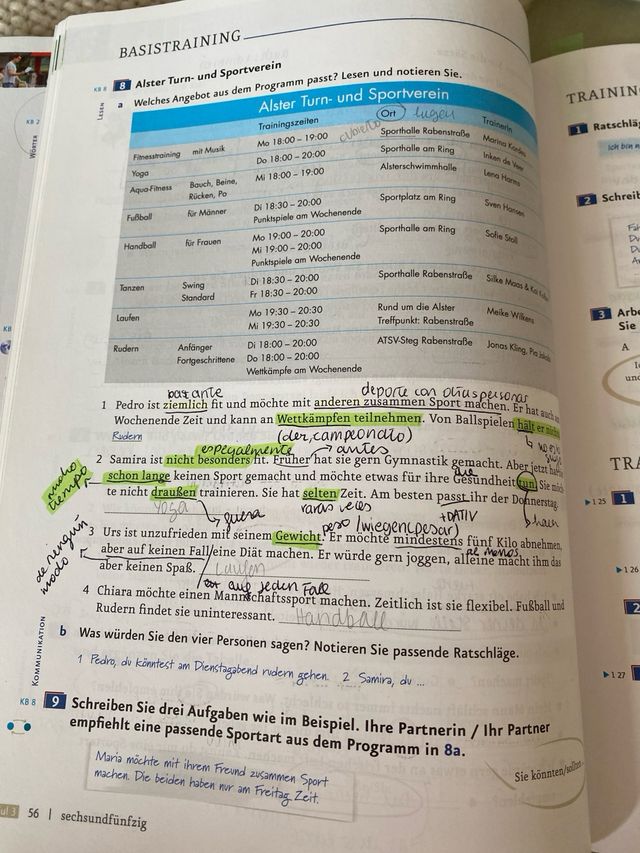 BASISTRAINING
KB 8 8 Alster Turn- und Sportverein
LESEN
a Welches Angebot aus dem Programm passt? Lesen und notieren Sie.
Alster Turn- und Sportverein
Trainingszeiten Ort TrainerIn
Fitnesstraining mit Musik Mo 18:00 – 19:00 Sporthalle Rabenstraße Marina
Yoga Do 18:00 – 20:00 Sporthalle am Ring Inken de Veer
Aqua-Fitness Bauch, Beine, Mi 18:00 – 19:00 Alsterschwimmhalle Lena Harms
Rücken, Po
Fußball für Männer Di 18:30 – 20:00 Sportplatz am Ring Sven Hansen
Punktspiele am Wochenende
Handball für Frauen Mo 19:00 – 20:00 Sporthalle am Ring Sofie Stoll
Mi 19:00 – 20:00
Punktspiele am Wochenende
Tanzen Swing Di 18:30 – 20:00 Sporthalle Rabenstraße Silke Maas &
Standard Fr 18:30 – 20:00
Laufen Mo 19:30 – 20:30 Rund um die Alster Meike Wilkens
Mi 19:30 – 20:30 Treffpunkt: Rabenstraße
Rudern Anfänger Di 18:00 – 20:00 ATSV-Steg Rabenstraße Jonas Kling, Pia
Fortgeschrittene Do 18:00 – 20:00
Wettkämpfe am Wochenende
bastante deporte con otras personas
1 Pedro ist ziemlich fit und möchte mit anderen zusammen Sport machen. Er hat auch am
Wochenende Zeit und kann an Wettkämpfen teilnehmen. Von Ballspielen hält er nichts
Rudern (der, campeonato)
especialmente antes
2 Samira ist nicht besonders fit. Früher hat sie gern Gymnastik gemacht. Aber jetzt hat
mucho tiempo
schon lange keinen Sport gemacht und möchte etwas für ihre Gesundheit tun. Sie möch-
te nicht draußen trainieren. Sie hat selten Zeit. Am besten passt ihr der Donnerstag.
Yoga fuera raras veces +DATIV hacer
peso/wiegen(pesar)
3 Urs ist unzufrieden mit seinem Gewicht. Er möchte mindestens fünf Kilo abnehmen,
de ningún modo
al menos
aber auf keinen Fall eine Diät machen. Er würde gern joggen, alleine macht ihm das
aber keinen Spaß. Laufen
auf jeden Fall
4 Chiara möchte einen Mannschaftssport machen. Zeitlich ist sie flexibel. Fußball und
Rudern findet sie uninteressant. Handball
KOMMUNIKATION
b Was würden Sie den vier Personen sagen? Notieren Sie passende Ratschläge.
1 Pedro, du könntest am Dienstagabend rudern gehen. 2 Samira, du ...
KB 8 9 Schreiben Sie drei Aufgaben wie im Beispiel. Ihre Partnerin / Ihr Partner
empfiehlt eine passende Sportart aus dem Programm in 8a.
Maria möchte mit ihrem Freund zusammen Sport
machen. Die beiden haben nur am Freitag Zeit.
Sie könnten/sollten
56 | sechsundfünfzig
KB 2
WÖRTER
KB
TRAINING
1 Ratschläg
Ich bin n
2 Schreib
3 Arbe
Sie
A
TRA
1 25 1
1 26
2
1 27